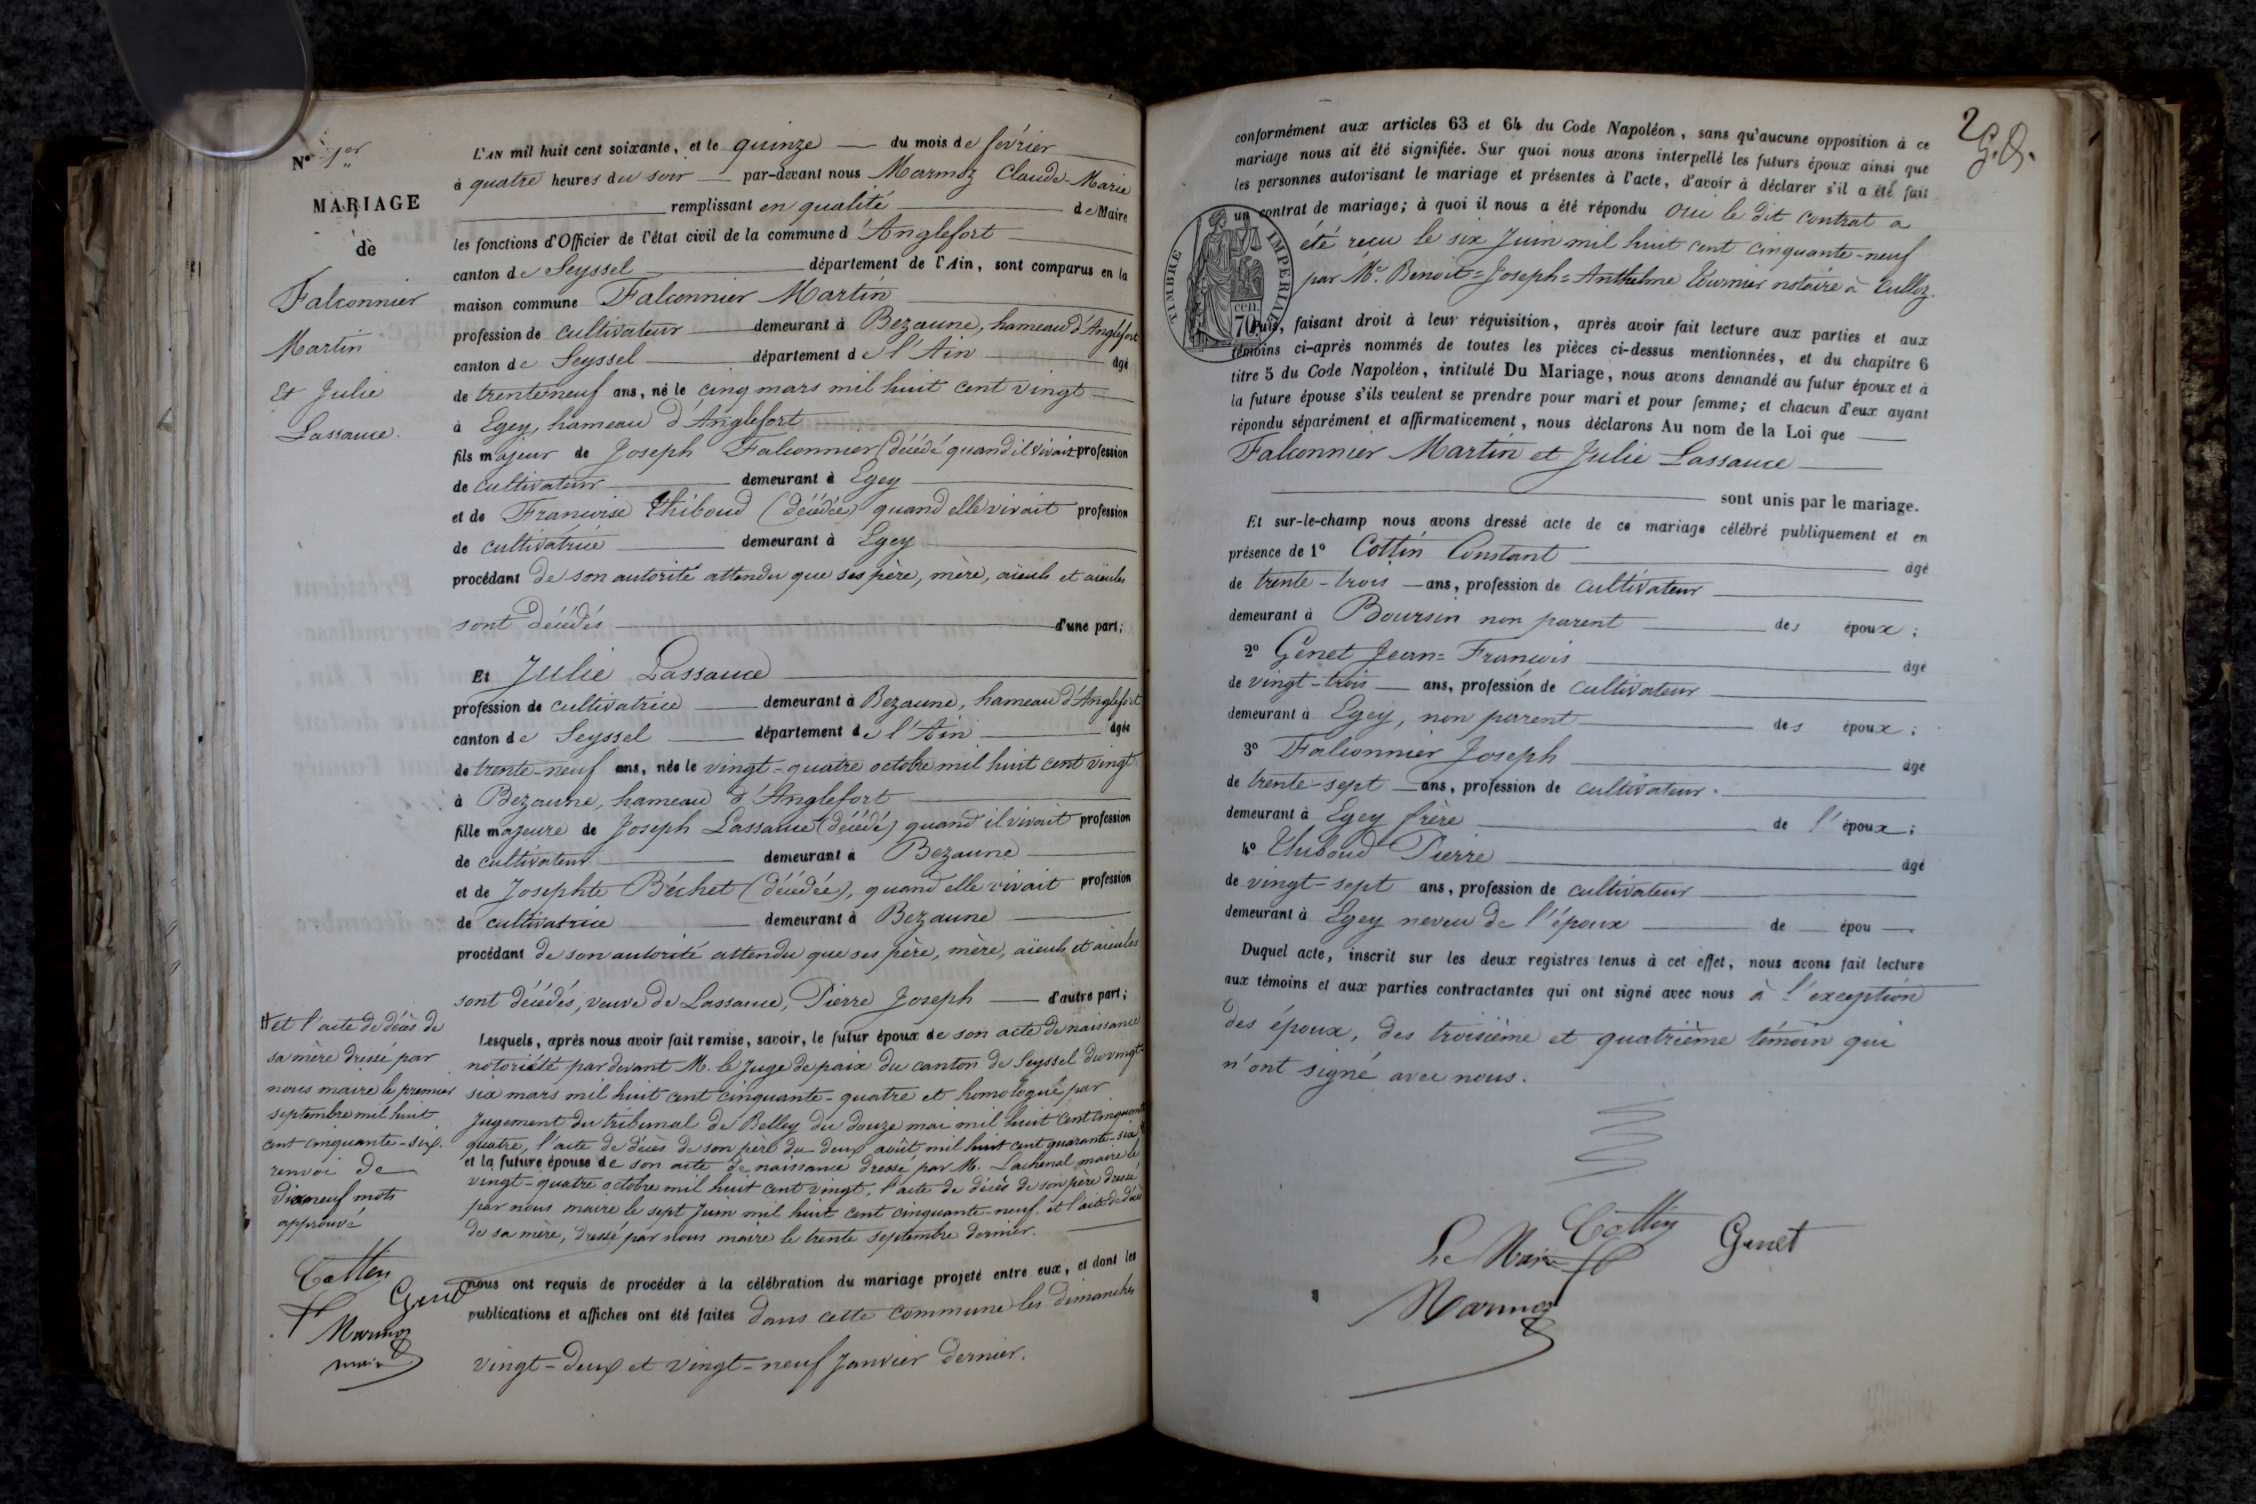 N° 1er
MARIAGE
de
Falconnier
Martin
Et Julie
Lassauce.
L'AN mil huit cent soixante, et le quinze du mois de février
à quatre heures du soir par-devant nous Marmoz Claude-Marie
remplissant en qualité de Maire
les fonctions d'Officier de l'état civil de la commune d'Anglefort
canton de Seyssel département de l'Ain, sont comparus en la
maison commune Falconnier Martin
profession de cultivateur demeurant à Bezaune, hameau d'Anglefort
canton de Seyssel département de l'Ain âgé
de trente neuf ans, né le cinq mars mil huit cent vingt
à Egey, hameau d'Anglefort
fils majeur de Joseph Falconnier (décédé quand il vivait profession
de cultivateur demeurant à Egey
et de Francoise Thiboud (décédée) quand elle vivait profession
de cultivatrice demeurant à Egey
procédant de son autorité attendu que ses père, mère, aïeuls et aïeules
sont décédés d'une part;
Et Julie Lassauce
profession de cultivatrice demeurant à Bezaune, hameau d'Anglefort
canton de Seyssel département de l'Ain âgée
de trente-neuf ans, née le vingt-quatre octobre mil huit cent vingt
à Bezaune, hameau d'Anglefort
fille majeure de Joseph Lassauce (décédé) quand il vivait profession
de cultivateur demeurant à Bezaune
et de Josephte Béchet (décédée), quand elle vivait profession
de cultivatrice demeurant à Bezaune
procédant de son autorité attendu que ses père, mère, aïeuls et aïeules
sont décédés, veuve de Lassauce, Pierre Joseph d'autre part;
Lesquels, après nous avoir fait remise, savoir, le futur époux de son acte de naissance
notoriété par devant M. le Juge de paix du canton de Seyssel du vingt-
six mars mil huit cent cinquante-quatre et homologué par
Jugement du tribunal de Belley du douze mai mil huit cent cinquante
quatre, l'acte de décès de son père du deux août mil huit cent quarante-six #
et la future épouse de son acte de naissance dressé par M. Lachenal maire le
vingt-quatre octobre mil huit cent vingt, l'acte de décès de son père dressé
par nous maire le sept Juin mil huit cent cinquante-neuf et l'acte de décès
de sa mère, dressé par nous maire le trente septembre dernier.
nous ont requis de procéder à la célébration du mariage projeté entre eux, et dont les
publications et affiches ont été faites dans cette commune les dimanches
vingt-deux et vingt-neuf Janvier dernier.
# et l'acte de décès de
sa mère dressé par
nous maire le premier
septembre mil huit
cent cinquante-six.
renvoi de
dix neuf mots
approuvé
Cottin
Genet
Marmoz
maire
2
conformément aux articles 63 et 64 du Code Napoléon, sans qu'aucune opposition à ce
mariage nous ait été signifiée. Sur quoi nous avons interpellé les futurs époux ainsi que
les personnes autorisant le mariage et présentes à l'acte, d'avoir à déclarer s'il a été fait
un contrat de mariage; à quoi il nous a été répondu Oui le dit contrat a
été reçu le six Juin mil huit cent cinquante-neuf
par Me. Benoit=Joseph=Anthelme Tournier notaire à Culloz.
TIMBRE IMPERIAL
70 cen
Puis, faisant droit à leur réquisition, après avoir fait lecture aux parties et aux
témoins ci-après nommés de toutes les pièces ci-dessus mentionnées, et du chapitre 6
titre 5 du Code Napoléon, intitulé Du Mariage, nous avons demandé au futur époux et à
la future épouse s'ils veulent se prendre pour mari et pour femme; et chacun d'eux ayant
répondu séparément et affirmativement, nous déclarons Au nom de la Loi que
Falconnier Martin et Julie Lassauce
sont unis par le mariage.
Et sur-le-champ nous avons dressé acte de ce mariage célébré publiquement et en
présence de 1° Cottin Constant âgé
de trente-trois ans, profession de cultivateur
demeurant à Boursin non parent des époux;
2° Genet Jean=Francois âgé
de vingt-trois ans, profession de cultivateur
demeurant à Egey, non parent des époux;
3° Falconnier Joseph âgé
de trente-sept ans, profession de cultivateur.
demeurant à Egey frère de l'époux;
4° Thiboud Pierre âgé
de vingt-sept ans, profession de cultivateur
demeurant à Egey neveu de l'époux de épou
Duquel acte, inscrit sur les deux registres tenus à cet effet, nous avons fait lecture
aux témoins et aux parties contractantes qui ont signé avec nous à l'exception
des époux, des troisième et quatrième témoin qui
n'ont signé avec nous.
Cottin
Genet
Le Maire
Marmoz